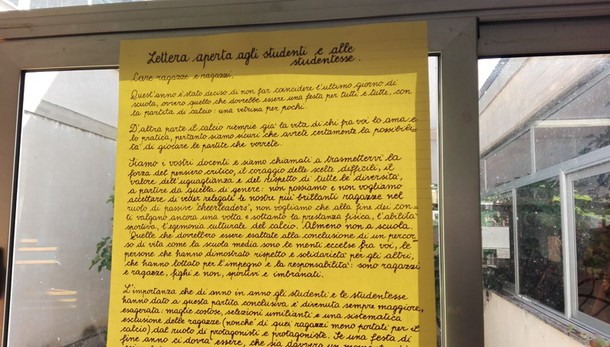 Lettera aperta agli studenti e alle
studentesse.
Care ragazze e ragazzi,
Quest'anno è stato deciso di non far coincidere l'ultimo giorno di
scuola, ovvero quello che dovrebbe essere una festa per tutti e tutte, con
la partita di calcio: una vetrina per pochi.
D'altra parte il calcio riempie già la vita di chi fra voi lo ama e
lo pratica, pertanto siamo sicuri che avrete certamente la possibili
tà di giocare le partite che vorrete.
Siamo i vostri docenti e siamo chiamati a trasmettervi la
forza del pensiero critico, il coraggio delle scelte difficili, il
valore dell'uguaglianza e del rispetto di tutte le diversità,
a partire da quella di genere: non possiamo e non vogliamo
accettare di veder relegate le nostre più brillanti ragazze nel
ruolo di passive cheerleaders, non vogliamo che alla fine dei con
ti valgano ancora una volta e soltanto la prestanza fisica, l'abilità
sportiva, l'egemonia culturale del calcio. Almeno non a scuola.
Quelle che dovrebbero essere esaltate alla conclusione di un percor
so di vita come la scuola media sono le menti eccelse fra voi, le
persone che hanno dimostrato rispetto e solidarietà per gli altri,
che hanno lottato per l'impegno e la responsabilità: sono ragazzi
e ragazze, fighi e non, sportivi e imbranati.
L'importanza che di anno in anno gli studenti e le studentesse
hanno dato a questa partita conclusiva è divenuta sempre maggiore,
esagerata: maglie costose, selezioni umilianti e una sistematica
esclusione delle ragazze (nonché di quei ragazzi meno portati per il
calcio) dal ruolo di protagonisti e protagoniste. Se una festa di
fine anno ci dovrà essere, che sia davvero un